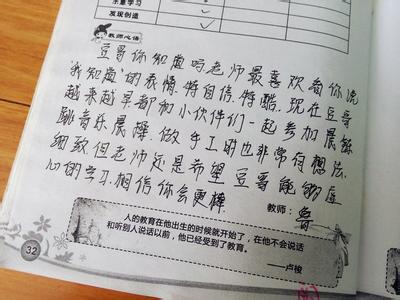 乐意学习
发现创造
教师心语
豆哥你知道吗老师最喜欢看你流
"我知道"的表情.特自信.特酷.现在豆哥
越来越早都和小伙伴们一起参加晨练
跳音乐晨操.做手工时也非常有想法.
细致但老师还是希望豆哥能够虚
心的学习.相信你会更棒.
教师:鲁
人的教育在他出生的时候就开始了,在他不会说话
和听别人说话以前,他已经受到了教育。
——卢梭
32